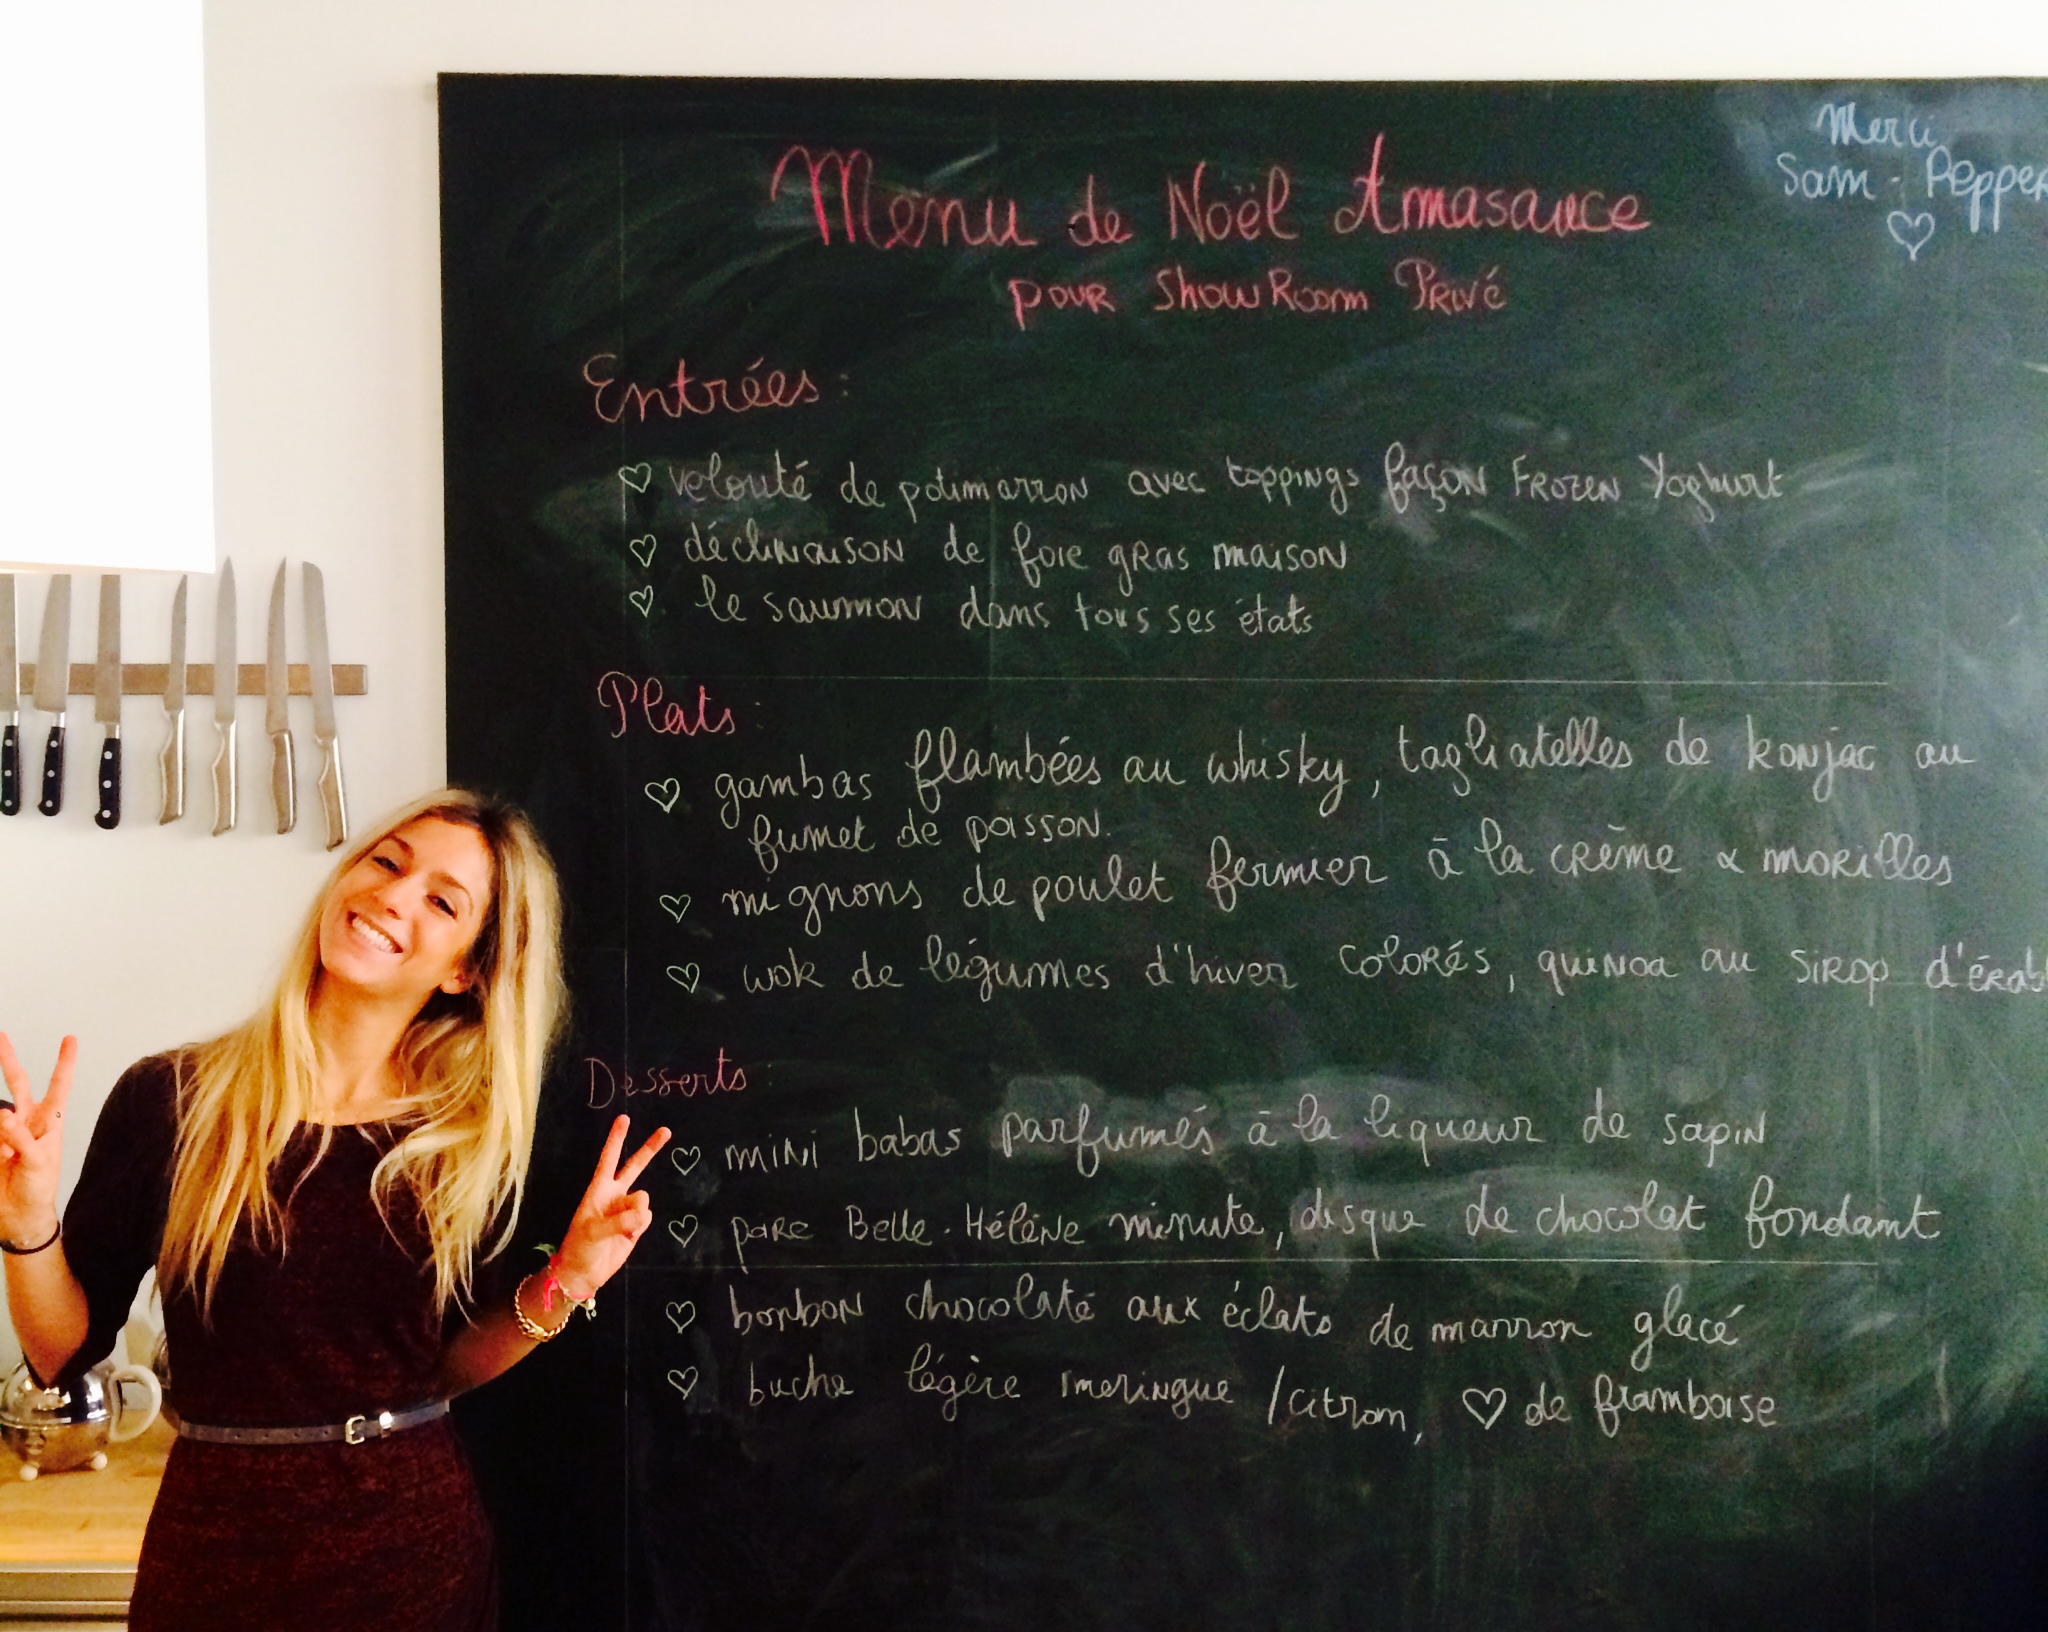 Menu de Noël Armasance
pour ShowRoom Privé
Merci
Sam-Pepper
Entrées:
velouté de potimarron avec toppings façon Frozen Yoghurt
déclinaison de foie gras maison
le saumon dans tous ses états
Plats:
gambas flambées au whisky, tagliatelles de konjac au
fumet de poisson.
mignons de poulet fermier à la crème & morilles
wok de légumes d'hiver colorés, quinoa au sirop d'érabl
Desserts:
mini babas parfumés à la liqueur de sapin
poire Belle-Hélène minute, disque de chocolat fondant
bonbon chocolaté aux éclats de marron glacé
buche légère meringue/citron, ♡ de framboise